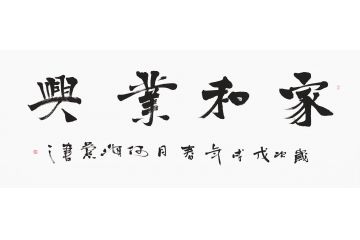 家和業興
歲次戊戌年春月何
書